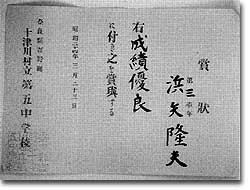 賞狀
第三學年
浜矢隆夫
右成績優良
に付き之を賞與する
昭和二十四年三月二十三日
奈良縣吉野郡
十津川村立第五中學校